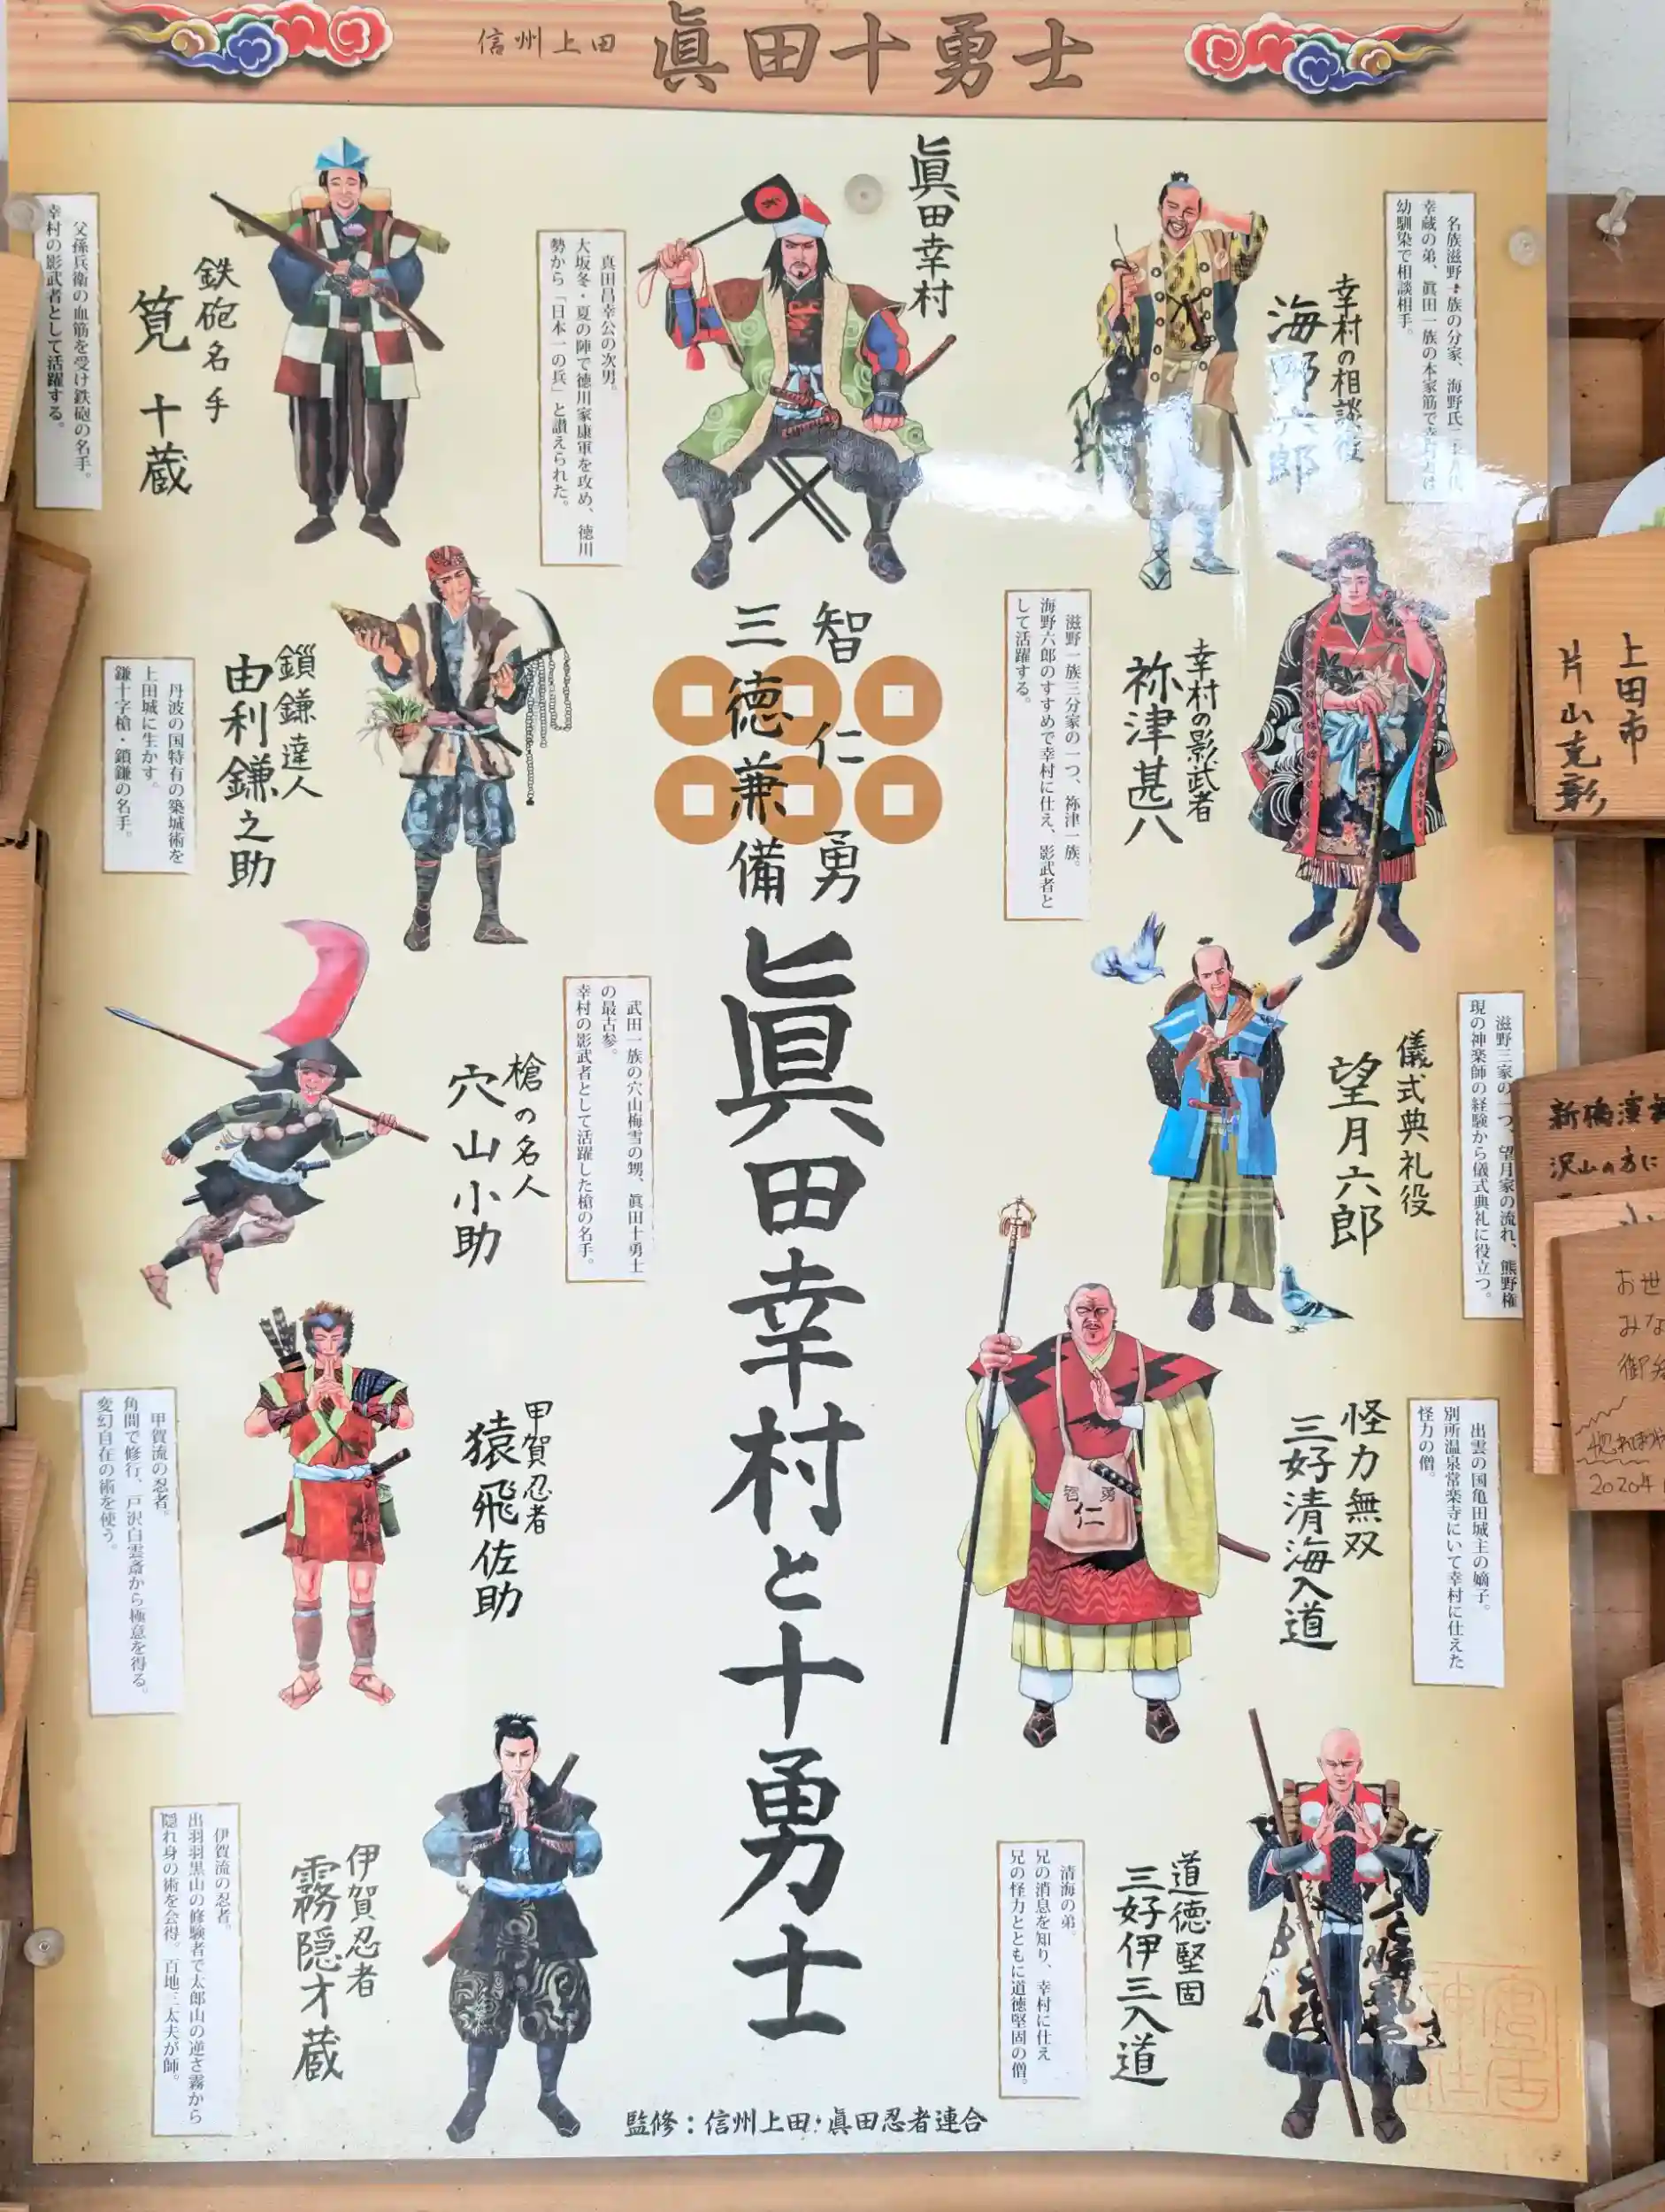 信州上田 眞田十勇士
眞田幸村
真田昌幸公の次男。
大坂冬・夏の陣で徳川家康軍を攻め、徳川
勢から「日本一の兵」と讃えられた。
幸村の相談役
海野六郎
名族滋野一族の分家、海野氏
幸蔵の弟、眞田一族の本家筋で
幼馴染で相談相手。
鉄砲名手
筧十蔵
父孫兵衛の血筋を受け鉄砲の名手。
幸村の影武者として活躍する。
幸村の影武者
祢津甚八
滋野一族三分家の一つ、祢津一族。
海野六郎のすすめで幸村に仕え、影武者と
して活躍する。
鎖鎌達人
由利鎌之助
丹波の国特有の築城術を
上田城に生かす。
鎌十字槍・鎖鎌の名手。
智仁勇
三徳兼備
眞田幸村と十勇士
儀式典礼役
望月六郎
滋野三家の一つ、望月家の流れ、熊野権
現の神楽師の経験から儀式典礼に役立つ。
槍の名人
穴山小助
武田一族の穴山梅雪の甥、眞田十勇士
の最古参。
幸村の影武者として活躍した槍の名手。
怪力無双
三好清海入道
出雲の国亀田城主の嫡子。
別所温泉常楽寺にいて幸村に仕えた
怪力の僧。
智勇
仁
甲賀忍者
猿飛佐助
甲賀流の忍者。
角間で修行、戸沢白雲斎から極意を得る。
変幻自在の術を使う。
道徳堅固
三好伊三入道
清海の弟。
兄の消息を知り、幸村に仕え
兄の怪力とともに道徳堅固の僧。
伊賀忍者
霧隠才蔵
伊賀流の忍者。
出羽羽黒山の修験者で太郎山の逆さ霧から
隠れ身の術を会得。百地三太夫が師。
監修：信州上田・眞田忍者連合
上田市
片山克彰
新橋演舞
沢山の方に
お世
みな
2020年